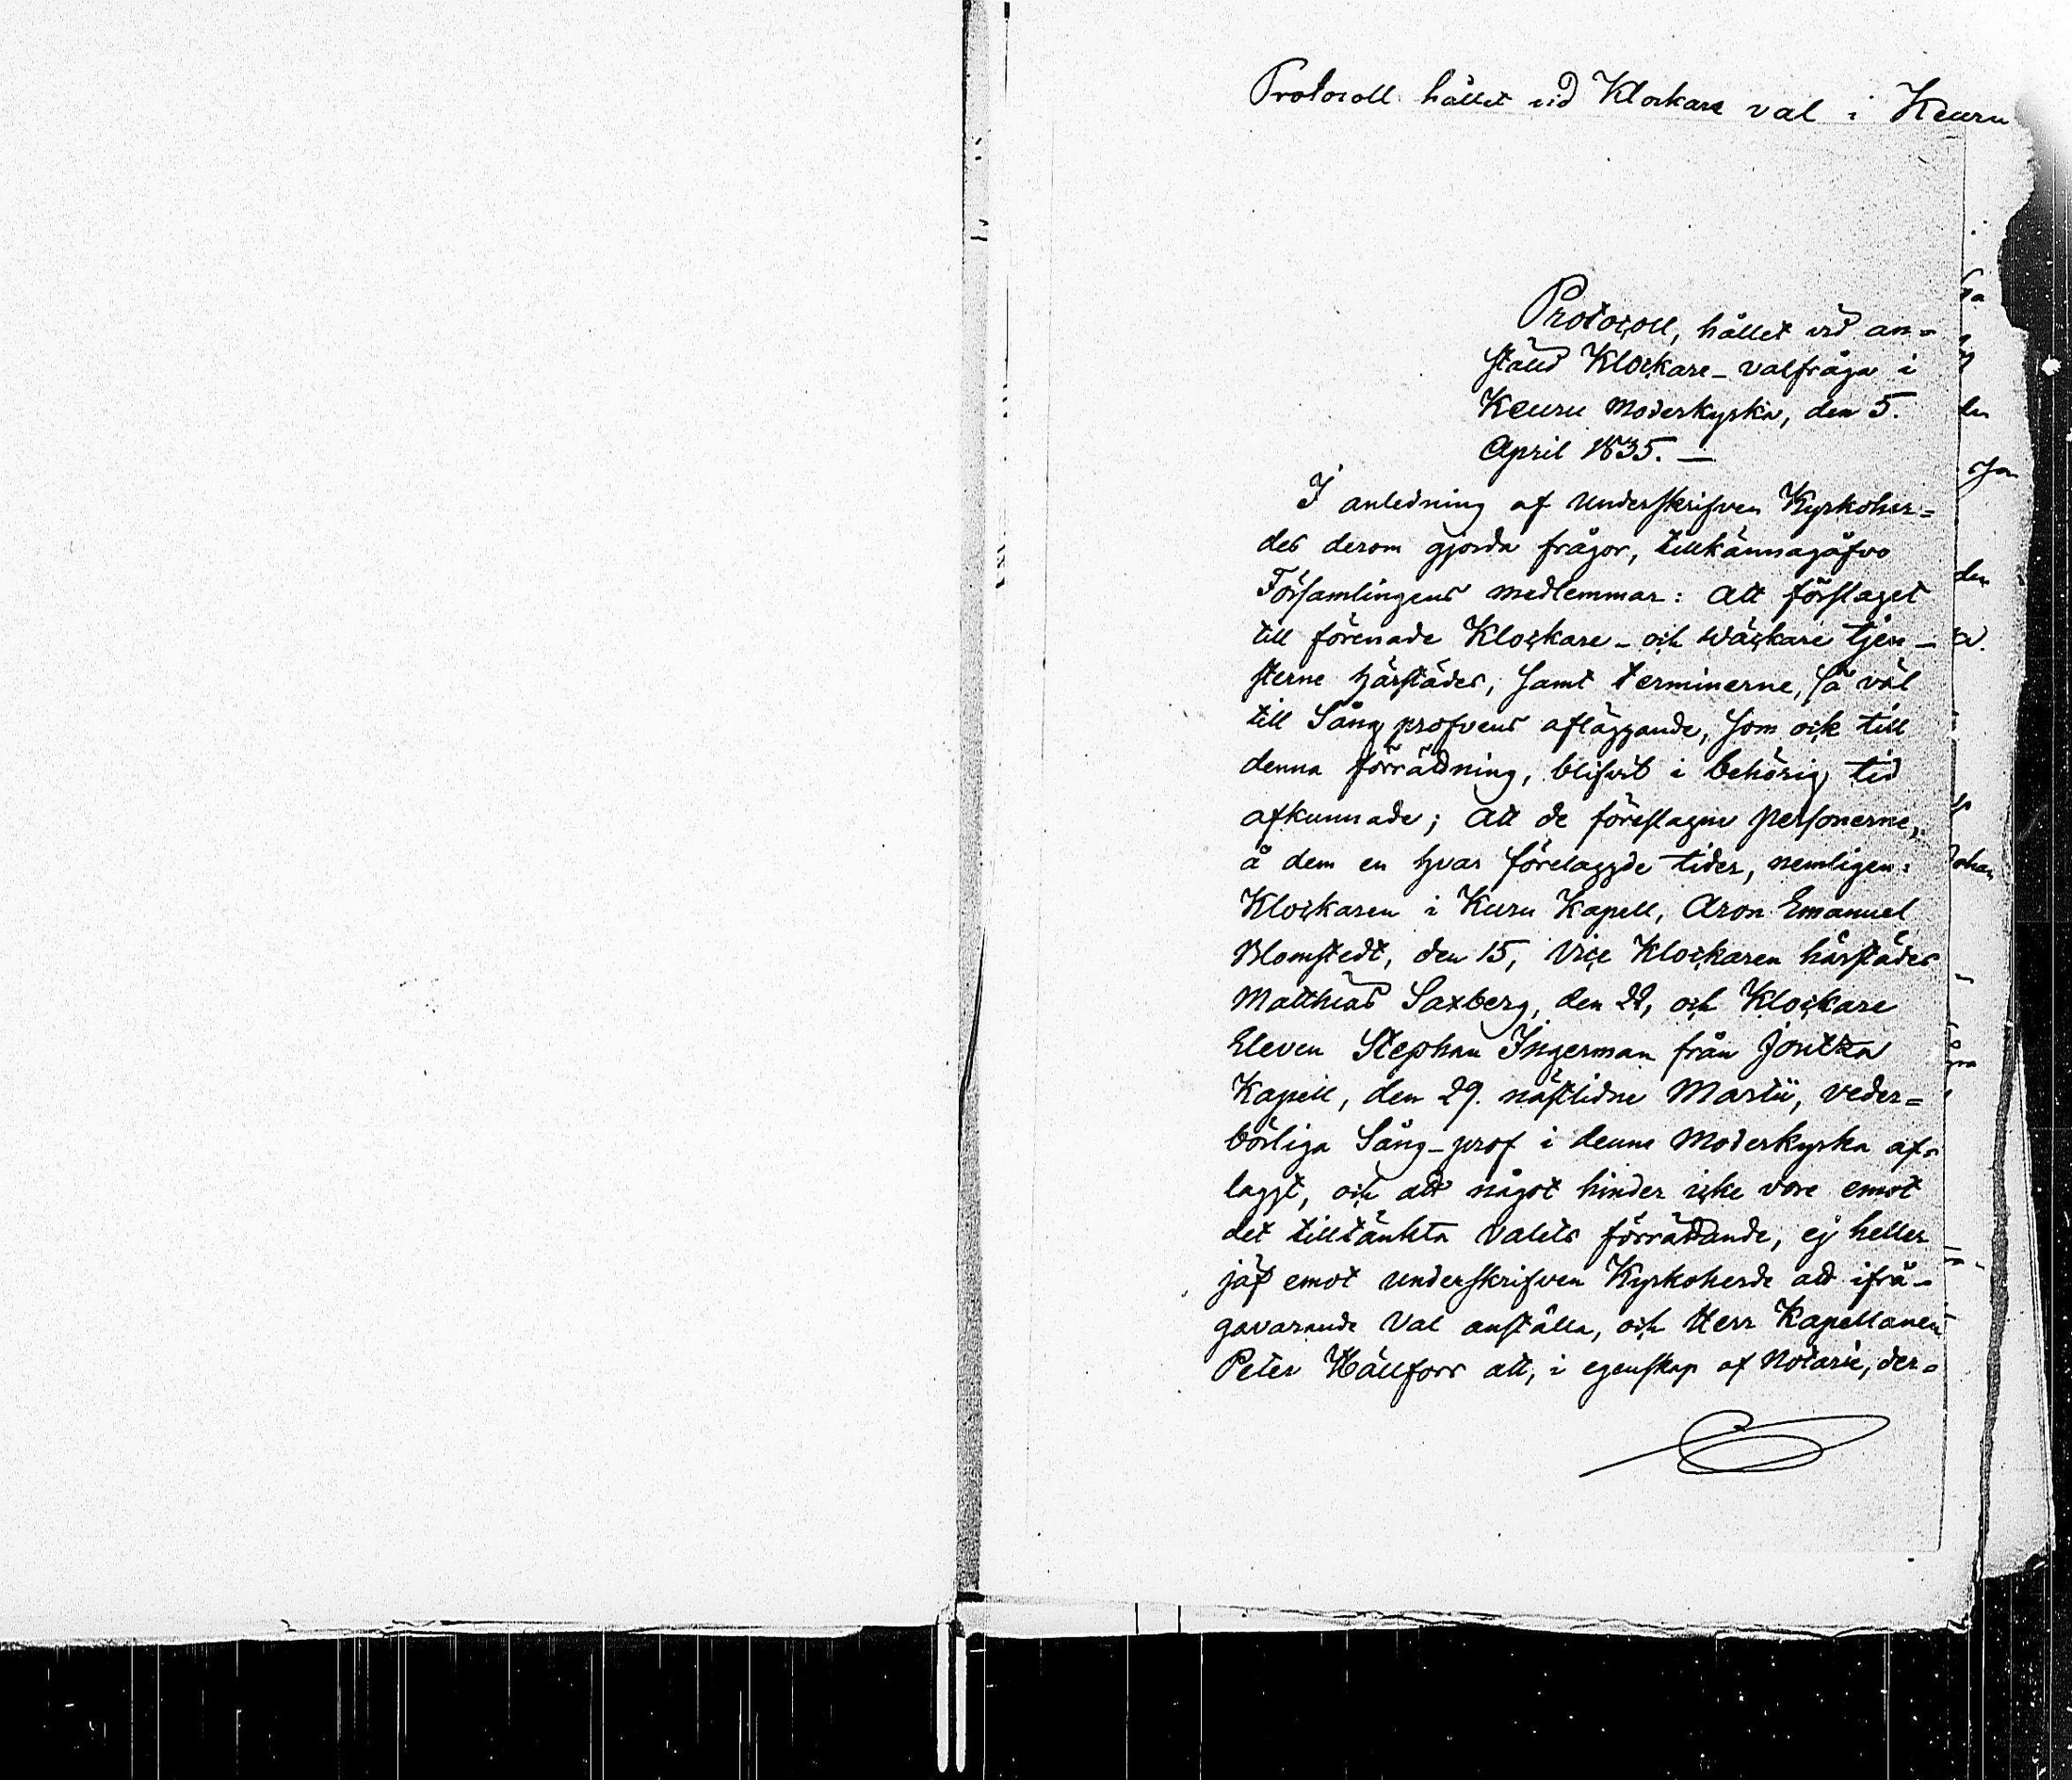 Protocoll hållet vid Klockare val i Keuru
Protocoll, hållet vid an=
stäld Klockare-valfråga i
Keuru Moderkyrka, den 5.
April 1835. —
I anledning af Underskrifven Kyrkoher=
des derom gjorda frågor, tillkännagåfvo
Församlingens medlemmar: att förslaget
till förenade Klockare- och Väckare tjen-
sterne härstädes, samt terminerne, så väl
till Sång profvens afläggande, som ock till
denna förrättning, blifvit i behörig tid
afkunnade; att de föreslagne personerne,
å dem en hvar förelaggde tider, nemligen:
Klockaren i Kuru Kapell, Aron Emanuel
Blomstedt, den 15, Vice Klockaren härstädes
Matthias Saxberg, den 22, och Klockare
Eleven Stephan Ingerman från Jontza
Kapell, den 29. nästlidne Martii, veder=
börliga Sång-prof i denna Moderkyrka af=
laggt, och att något hinder icke vore emot
det tilltänkta Valets förrättande, ej heller
jäf emot underskrifven Kyrkoherde att ifrå-
gavarande Val anställa, och Herr Kapellanen
Peter Hällfors att, i egenskap af Notarie, der=